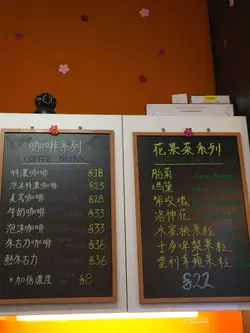 咖啡系列
COFFEE DRINK
特濃咖啡 $18
泡沫特濃咖啡 $23
美式咖啡 $28
牛奶咖啡 $33
泡沫咖啡 $33
朱古力咖啡 $36
熱朱古力 $36
*加倍濃度 $8
花果茶系列
胎菊
瑪蓮
紫玫瑰
洛神花
冰茶桃果粒
士多啤梨果粒
里利年蘋果粒
$22